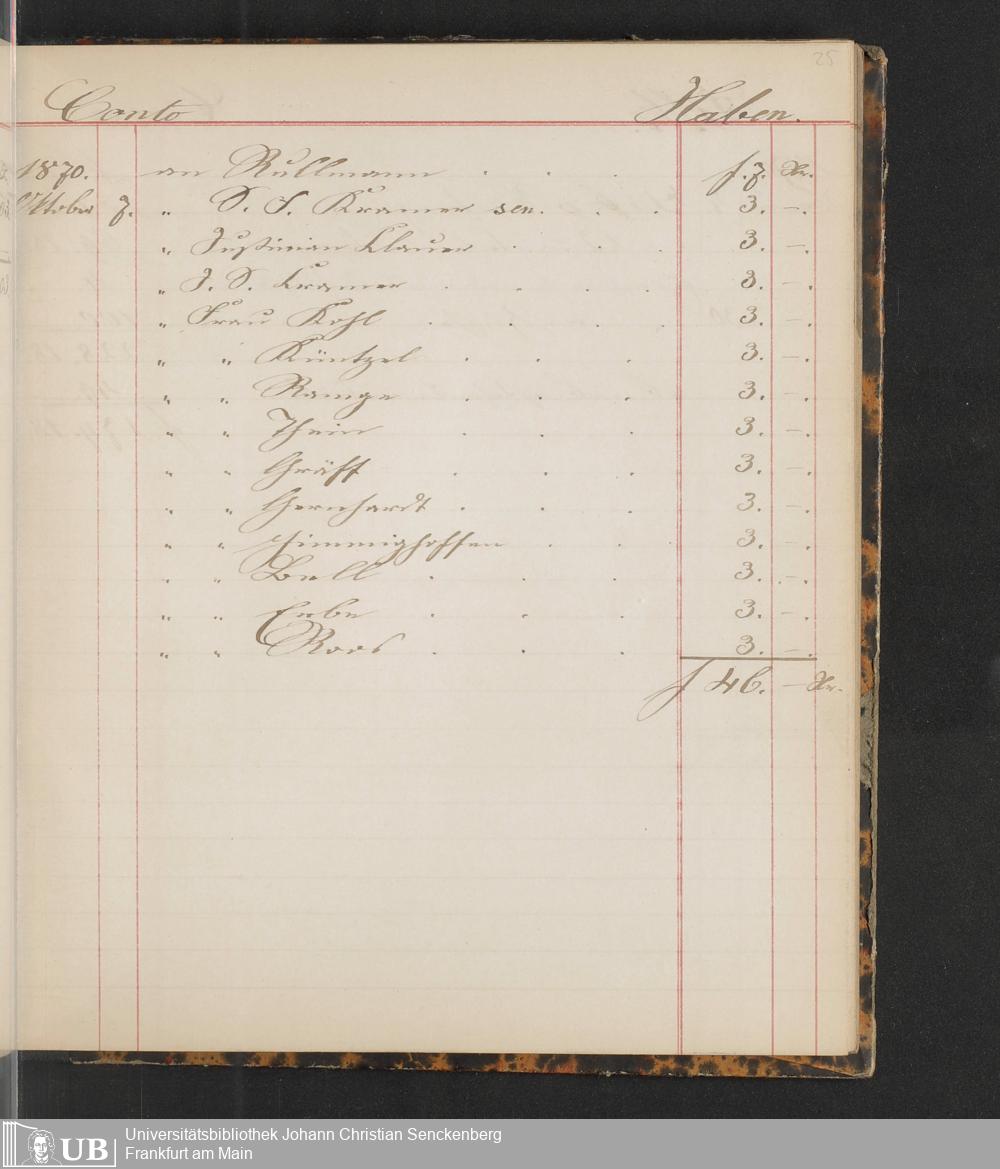 25
Conto Haben.
1870. an Rullmann . . . f. 7. Kr.
Oktober 7. " D. F. Kramer sen. . . 3. –.
" Justinian Klauer . . . 3. –.
" J. D. Kramer . . . . 3. –.
" Frau Kohl . . . . 3. –.
" " Küntzel . . . 3. –.
" " Range . . . 3. –.
" " Thein . . . 3. –.
" " Gräff . . . 3. –.
" " Gernhardt . . . 3. –.
" " Himmighoffen . . . 3. –.
" " Bell . . . 3. –.
" " Erbe . . . 3. –.
" " Roos . . . 3. –.
f 46. – Kr.
UB Universitätsbibliothek Johann Christian Senckenberg
Frankfurt am Main